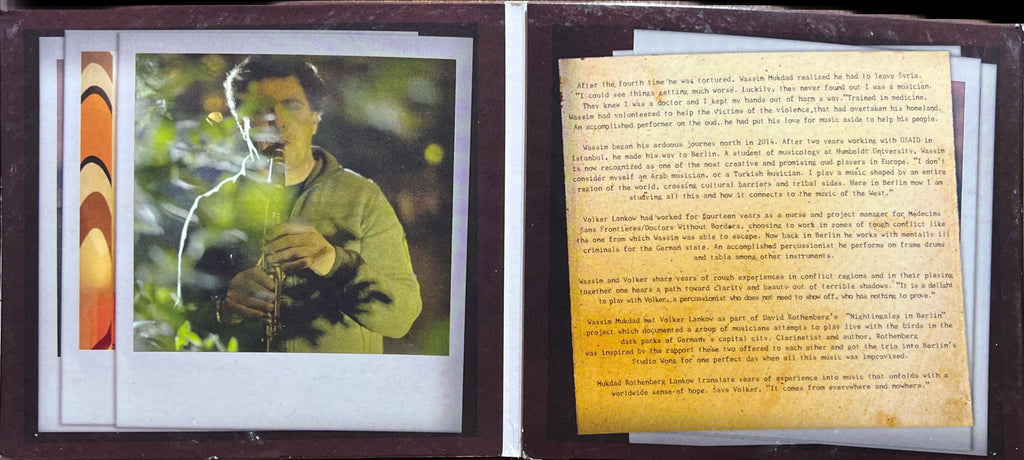 After the fourth time he was tortured, Wassim Mukdad realized he had to leave Syria.
"I could see things getting much worse. Luckily, they never found out I was a musician.
They knew I was a doctor and I kept my hands out of harm s way."Trained in medicine,
Wassim had volunteered to help the victims of the violence that had overtaken his homeland.
An accomplished performer on the oud, he had put his love for music aside to help his people.
Wassim began his arduous journey north in 2014. After two years working with USAID in
Istanbul, he made his way to Berlin. A student of musicology at Humboldt University, Wassim
is now recognized as one of the most creative and promising oud players in Europe. "I don't
consider myself an Arab musician, or a Turkish musician. I play a music shaped by an entire
region of the world, crossing cultural barriers and tribal sides. Here in Berlin now I am
studying all this and how it connects to the music of the West."
Volker Lankow had worked for fourteen years as a nurse and project manager for Medecins
Sans Frontieres/Doctors Without Borders, choosing to work in zones of tough conflict like
the one from which Wassim was able to escape. Now back in Berlin he works with mentally ill
criminals for the German state. An accomplished percussionist he performs on frame drums
and tabla among other instruments.
Wassim and Volker share years of rough experiences in conflict regions and in their playing
together one hears a path toward clarity and beauty out of terrible shadows. "It is a delight
to play with Volker, a percussionist who does not need to show off, who has nothing to prove."
Wassim Mukdad met Volker Lankow as part of David Rothenberg's "Nightingales in Berlin"
project which documented a group of musicians attempts to play live with the birds in the
dark parks of Germany s capital city. Clarinetist and author, Rothenberg
was inspired by the rapport these two offered to each other and got the trio into Berlin's
Studio Wong for one perfect day when all this music was improvised.
Mukdad Rothenberg Lankow translate years of experience into music that unfolds with a
worldwide sense of hope. Says Volker, "It comes from everywhere and nowhere."